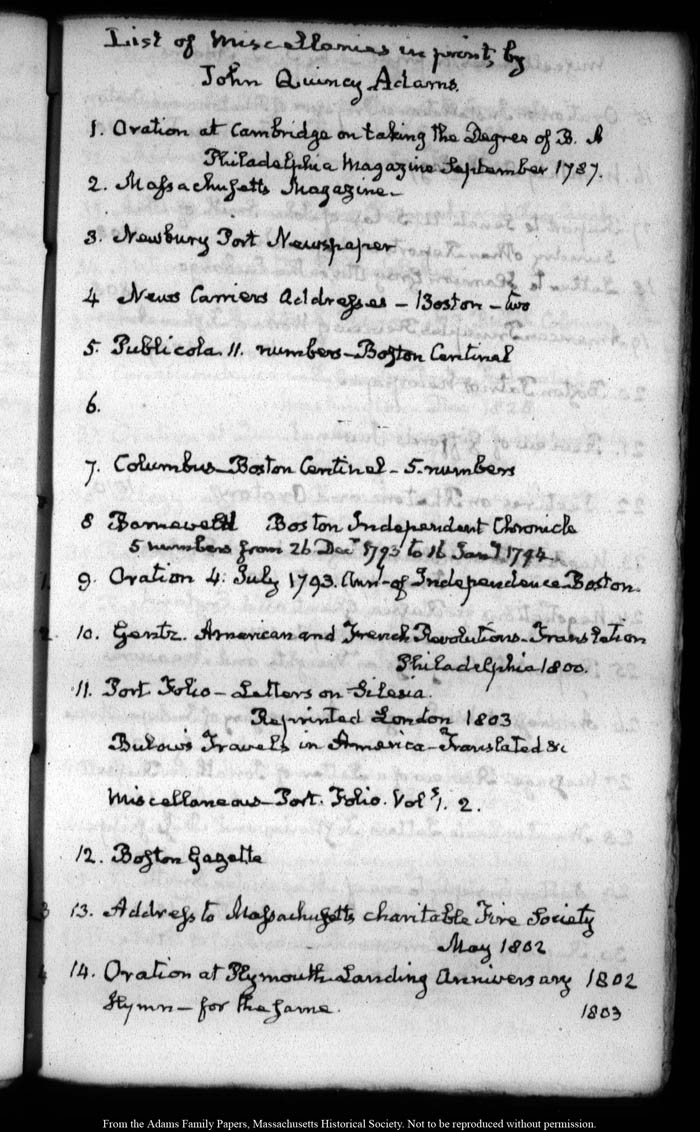 List of Miscellanies in print by
John Quincy Adams.
1. Oration at Cambridge on taking the Degree of B. A
Philadelphia Magazine September 1787.
2. Massachusetts Magazine—
3. Newbury Port Newspaper
4 News Carriers Addresses — Boston — two
5. Publicola. 11. numbers—Boston Centinal
6.
7. Columbus—Boston Centinel — 5. numbers
8 Barneveld Boston Independent Chronicle
5 numbers from 26 Decr. 1793 to 16 Jany 1794.
1. 9. Oration 4. July 1793. Anny. of Independence Boston.
2. 10. Gentz. American and French Revolutions—Translation
Philadelphia 1800.
11. Port Folio — Letters on Silesia.
Reprinted London 1803
Bulow's Travels in America—Translated &c
Miscellaneous—Port. Folio. Vols. 1. 2.
12. Boston Gazette
3 13. Address to Massachusetts charitable Fire Society
May 1802
4 14. Oration at Plymouth Landing Anniversary 1802
Hymn — for the same. 1803
From the Adams Family Papers, Massachusetts Historical Society. Not to be reproduced without permission.